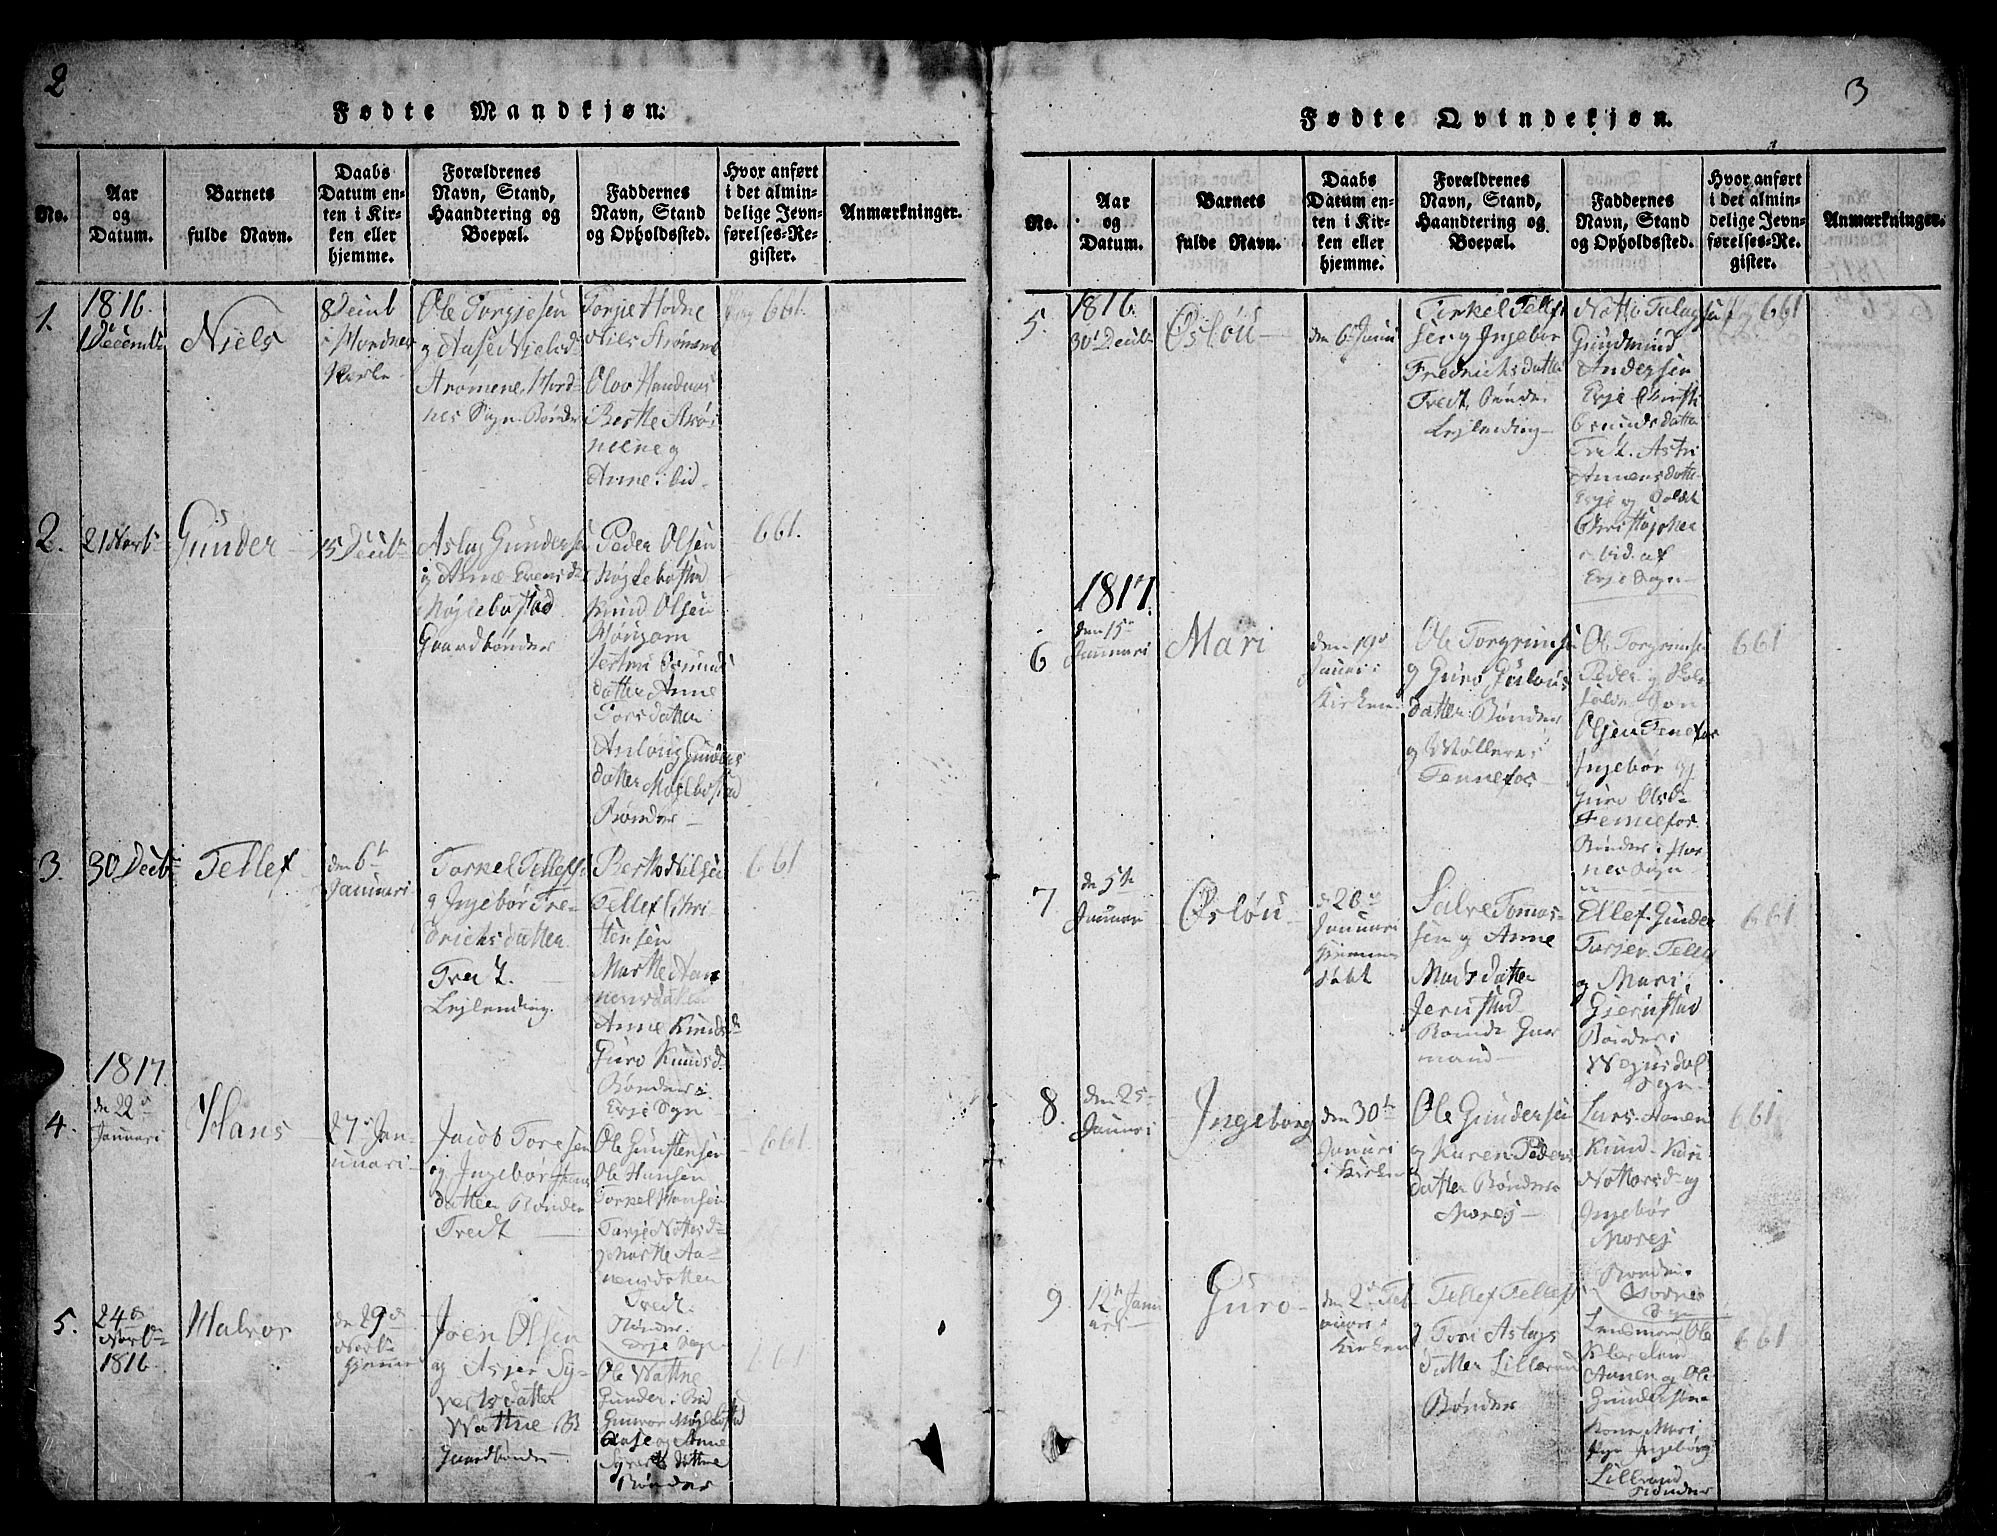 2
Fødte Mandkjøn.
No.
Aar
og
Datum.
Barnets
fulde Navn.
Daabs
Datum en-
ten i Kir-
ken eller
hjemme.
Forældrenes
Navn, Stand,
Haandtering og
Boepæl.
Faddernes
Navn, Stand
og Opholdssted.
Hvor anført
i det almin-
delige Jevn-
førelses-Re-
gister.
Anmærkninger.
1.
1816.
1 Decemb
Niels
8 Decmb
i Hordnes
Kirke
Ole Torgjesen
og Aase Nielsd
Strømene, Hord-
nes Sogn. Bønder
Torje Hodne
Nils Strømene
Olov Handnes
Berthe Strø-
mene og
Anne ibid.
661
2.
21 Novb
Gunder
15 Decbr
Aslag Gundersen
og Anne Evensd
Møglebostad
Gaardbønder
Peder Olsen
Møglebostad
Knud Olsen
Osmunds
datter Anne
Torsdatter
datter Møglebostad
Bønder
661.
3.
30 Decbr
Tellef
den 6te
Januari
Torkel Tellefs
og Ingebor Fre-
drichsdatter
Tredt.
Lejlending.
Tellef Chri
stensen
Marthe Aan
nensdatter
Anne Knudsd
Guro Knudsd
Bønder i
Evje Sogn
661
1817.
4.
den 22
Januari
Hans
27 Jan-
uuari
Jacob Toresen
og Ingebor Hans
datter Bønder
Tredt
Ole Gunstensen
Ole Hansen
Torkel Hansen
Tarje Nottosd
og Marthe Aa-
nensdatter
Tredt.
Bønder.
Evje Sogn
661
5.
24de
Novbr
1816
Halvor
den 29de
Novb
hjemme
Joen Olsen
og Asper Sy-
vertsdatter
Wattne B
Gaardbønder
Ole Wattne
Gunder ibid
Gunvor Møglebostad
Aase og Anne
Syvertsdatter
Bønder
661
3
Fødte Qvindekjøn.
No.
Aar
og
Datum.
Barnets
fulde Navn.
Daabs
Datum en-
ten i Kir-
ken eller
hjemme.
Forældrenes
Navn, Stand,
Haandtering og
Boepæl.
Faddernes
Navn, Stand
og Opholdssted.
Hvor anført
i det almin-
delige Jevn-
førelses-Re-
gister.
Anmærkninger.
5.
1816.
30 Decbr
Øslou
den 6te Janu
Tirkel Tellef
sen og Ingebor
Fredrichsdatter
Tredt, Bønder
Lejlending
Gundmund
Andersen
Evje Christi
Osmundsdatter
Astri
Annensdatter
Evje og
Christopher
ibid. af
Evje Sogn
661
1817.
6
den 15de
Januari
Mari
den 19de
Januari i
Kirken
Ole Torgrimsen
og Guro Gulous
datter Bønder
og Møllere
Tennefos
Ole Torgrimsen
Peder og
Jon
Olsen Tenefos
Ingebor og
Guro Olsd
Tennefos
Bønder i Hor-
nes Sogn
661
7
den 5te
Januar
Øslou
d 26de
Januari
hjemme
døbt
Salve Tomas-
sen og Anne
Madsdatter
Jerustad
Bonde Gaar
mand
Ellef Gunder
Tarjer Tellef
og Mari
Gierustad
Bønder i
Wegusdal
Sogn
661
8.
den 25
Januari
Ingeborg
den 30te
Januari
i Kirken
Ole Gundersen
og Karen Peders
datter Bønder
Morej
Lars Aanen
Knud Kari
Nottosd og
Ingebor
Morej
Bønder
Hornes
Sogn
661
9
12te Janu
ari
Guro
den 2de Feb
ruari i
Kirken
Tellef Tellefs
og Tori Aslags
datter Lillerud
Bønder
Lensmand Ole
Aanen og Ole
Gundersøn
Kone Mari
Ingeborg
Lillerud
Bønder
661